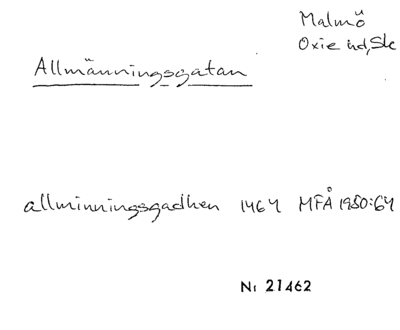 Malmö
Oxie hd, Sk
Allmänningsgatan
allminningsgadhen 1464 MFÅ 1950:64
Nr 21462